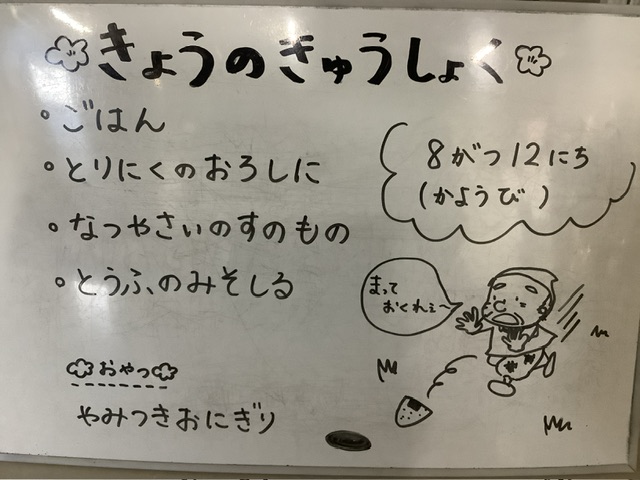 きょうのきゅうしょく
・ごはん
・とりにくのおろしに
・なつやさいのすのもの
・とうふのみそしる
おやつ
やみつきおにぎり
8がつ12にち
(かようび)
まって
おくれぇ〜